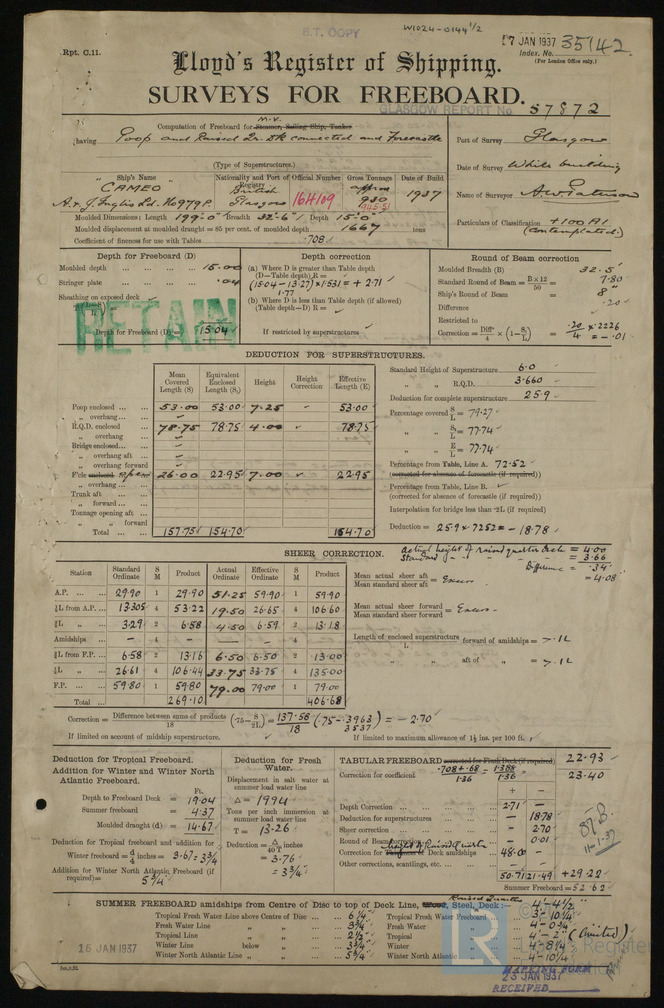 B.T. COPY
W1024-0144 1/2
Rpt. C.11.
7 JAN 1937 35142
Index No.
(For London Office only.)
Lloyd's Register of Shipping.
SURVEYS FOR FREEBOARD.
GLASGOW REPORT No. 57872
Computation of Freeboard for Steamer, Sailing Ship, Tanker M.V.
having Poop and Raised Qr. Dk connected and Forecastle
(Type of Superstructures.)
Port of Survey Glasgow
Date of Survey While building
Name of Surveyor A.W. Paterson
Particulars of Classification +100A1
(Contemplated.)
Ship's Name Nationality and Port of Registry Official Number Gross Tonnage Date of Build
CAMEO British 164109 approx 930 1937
A. & J. Inglis Ld. No 979P. Glasgow 945.51
Moulded Dimensions: Length 199'-0" Breadth 32'-6" Depth 15'-0"
Moulded displacement at moulded draught = 85 per cent. of moulded depth 1667 tons
Coefficient of fineness for use with Tables .708
Depth for Freeboard (D)
Moulded depth 15.00
Stringer plate .04
Sheathing on exposed deck
RETAIN
Depth for Freeboard (D) = 15.04
Depth correction
(a) Where D is greater than Table depth
(D—Table depth) R =
(15.04 - 13.27) × 1.531 = + 2.71
1.77
(b) Where D is less than Table depth (if allowed)
(Table depth—D) R =
If restricted by superstructures
Round of Beam correction
Moulded Breadth (B) 32.5
Standard Round of Beam = B × 12 / 50 = 7.80
Ship's Round of Beam = 8"
Difference .20
Restricted to
Correction = Diff / 4 × (1 - S1/L) = .20/4 × .2226 = - .01
DEDUCTION FOR SUPERSTRUCTURES.
Mean Covered Length (S) Equivalent Enclosed Length (S1) Height Height Correction Effective Length (E)
Poop enclosed 53.00 53.00 7.25 53.00
" overhang
R.Q.D. enclosed 78.75 78.75 4.00 78.75
" overhang
Bridge enclosed
" overhang aft
" overhang forward
F'cle enclosed open 26.00 22.95 7.00 22.95
" overhang
Trunk aft
" forward
Tonnage opening aft
" " forward
Total 157.75 154.70 154.70
Standard Height of Superstructure 6.0
" " R.Q.D. 3.660
Deduction for complete superstructure 25.9
Percentage covered S/L = 79.27
" " S1/L = 77.74
" " E/L = 77.74
Percentage from Table, Line A. 72.52
(corrected for absence of forecastle (if required))
Percentage from Table, Line B.
(corrected for absence of forecastle (if required))
Interpolation for bridge less than .2L (if required)
Deduction = 25.9 × .7252 = - 18.78
SHEER CORRECTION.
Actual height of raised quarter deck = 4.00
Standard " " " = 3.66
Difference = .34
= 4.08
Station Standard Ordinate S M Product Actual Ordinate Effective Ordinate S M Product
A.P. 29.90 1 29.90 51.25 59.90 1 59.90
⅙L from A.P. 13.305 4 53.22 19.50 26.65 4 106.60
⅓L 3.29 2 6.58 4.50 6.59 2 13.18
Amidships - 4 - - 4
⅓L from F.P. 6.58 2 13.16 6.50 6.50 2 13.00
⅙L 26.61 4 106.44 33.75 33.75 4 135.00
F.P. 59.80 1 59.80 79.00 79.00 1 79.00
Total 269.10 406.68
Mean actual sheer aft
Mean standard sheer aft = Excess
Mean actual sheer forward
Mean standard sheer forward = Excess
Length of enclosed superstructure / L forward of amidships = > .1L
" " aft of " = > .1L
Correction = Difference between sums of products / 18 (.75 - S/2L) = 137.58 / 18 (.75 - .3963) = - 2.70
.3537
If limited on account of midship superstructure.
If limited to maximum allowance of 1½ ins. per 100 ft.
Deduction for Tropical Freeboard.
Addition for Winter and Winter North Atlantic Freeboard.
Ft.
Depth to Freeboard Deck = 19.04
Summer freeboard = 4.37
Moulded draught (d) = 14.67
Deduction for Tropical freeboard and addition for
Winter freeboard = d/4 inches = 3.67 = 3¾
Addition for Winter North Atlantic Freeboard (if required) = 5¾
Deduction for Fresh Water.
Displacement in salt water at summer load water line
Δ = 1994
Tons per inch immersion at summer load water line
T = 13.26
Deduction = Δ / 40 T inches
= 3.76
= 3¾"
TABULAR FREEBOARD corrected for Flush Deck (if required) 22.93
Correction for coefficient .708 + .68 / 1.36 = 1.388 / 1.36 23.40
+ -
Depth Correction 2.71 -
Deduction for superstructures - 18.78
Sheer correction - 2.70
Round of Beam correction - 0.01
Correction for Thickness of Deck amidships Height of Raised Quarter 48.00 -
Other corrections, scantlings, etc. - -
50.71 21.49 +29.22
Summer Freeboard = 52.62
11-1-37
SUMMER FREEBOARD amidships from Centre of Disc to top of Deck Line, Wood, Steel, Deck: Raised Quarter 4'-4½"
Tropical Fresh Water Line above Centre of Disc 6¼" Tropical Fresh Water Freeboard 3'-10¼"
Fresh Water Line " " 3¾" Fresh Water " 4'-0¾"
Tropical Line " " 2½" Tropical " 4'-2" (Limited)
Winter Line below " " 3¾" Winter " 4'-8¼"
Winter North Atlantic Line " " 5¾" Winter North Atlantic " 4'-10¼"
15 JAN 1937
MAPPING FORM
23 JAN 1937
RECEIVED
LR